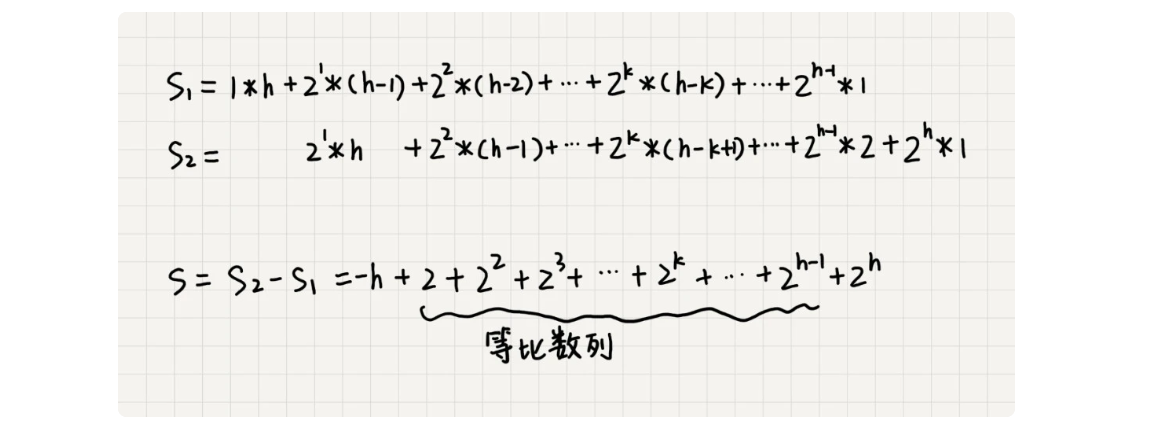 S₁ = 1*h + 2¹*(h-1) + 2²*(h-2) + ⋯ + 2ᵏ*(h-k) + ⋯ + 2ʰ⁻¹*1
S₂ = 2¹*h + 2²*(h-1) + ⋯ + 2ᵏ*(h-k+1) + ⋯ + 2ʰ⁻¹*2 + 2ʰ*1
S = S₂ - S₁ = -h + 2 + 2² + 2³ + ⋯ + 2ᵏ + ⋯ + 2ʰ⁻¹ + 2ʰ
等比数列